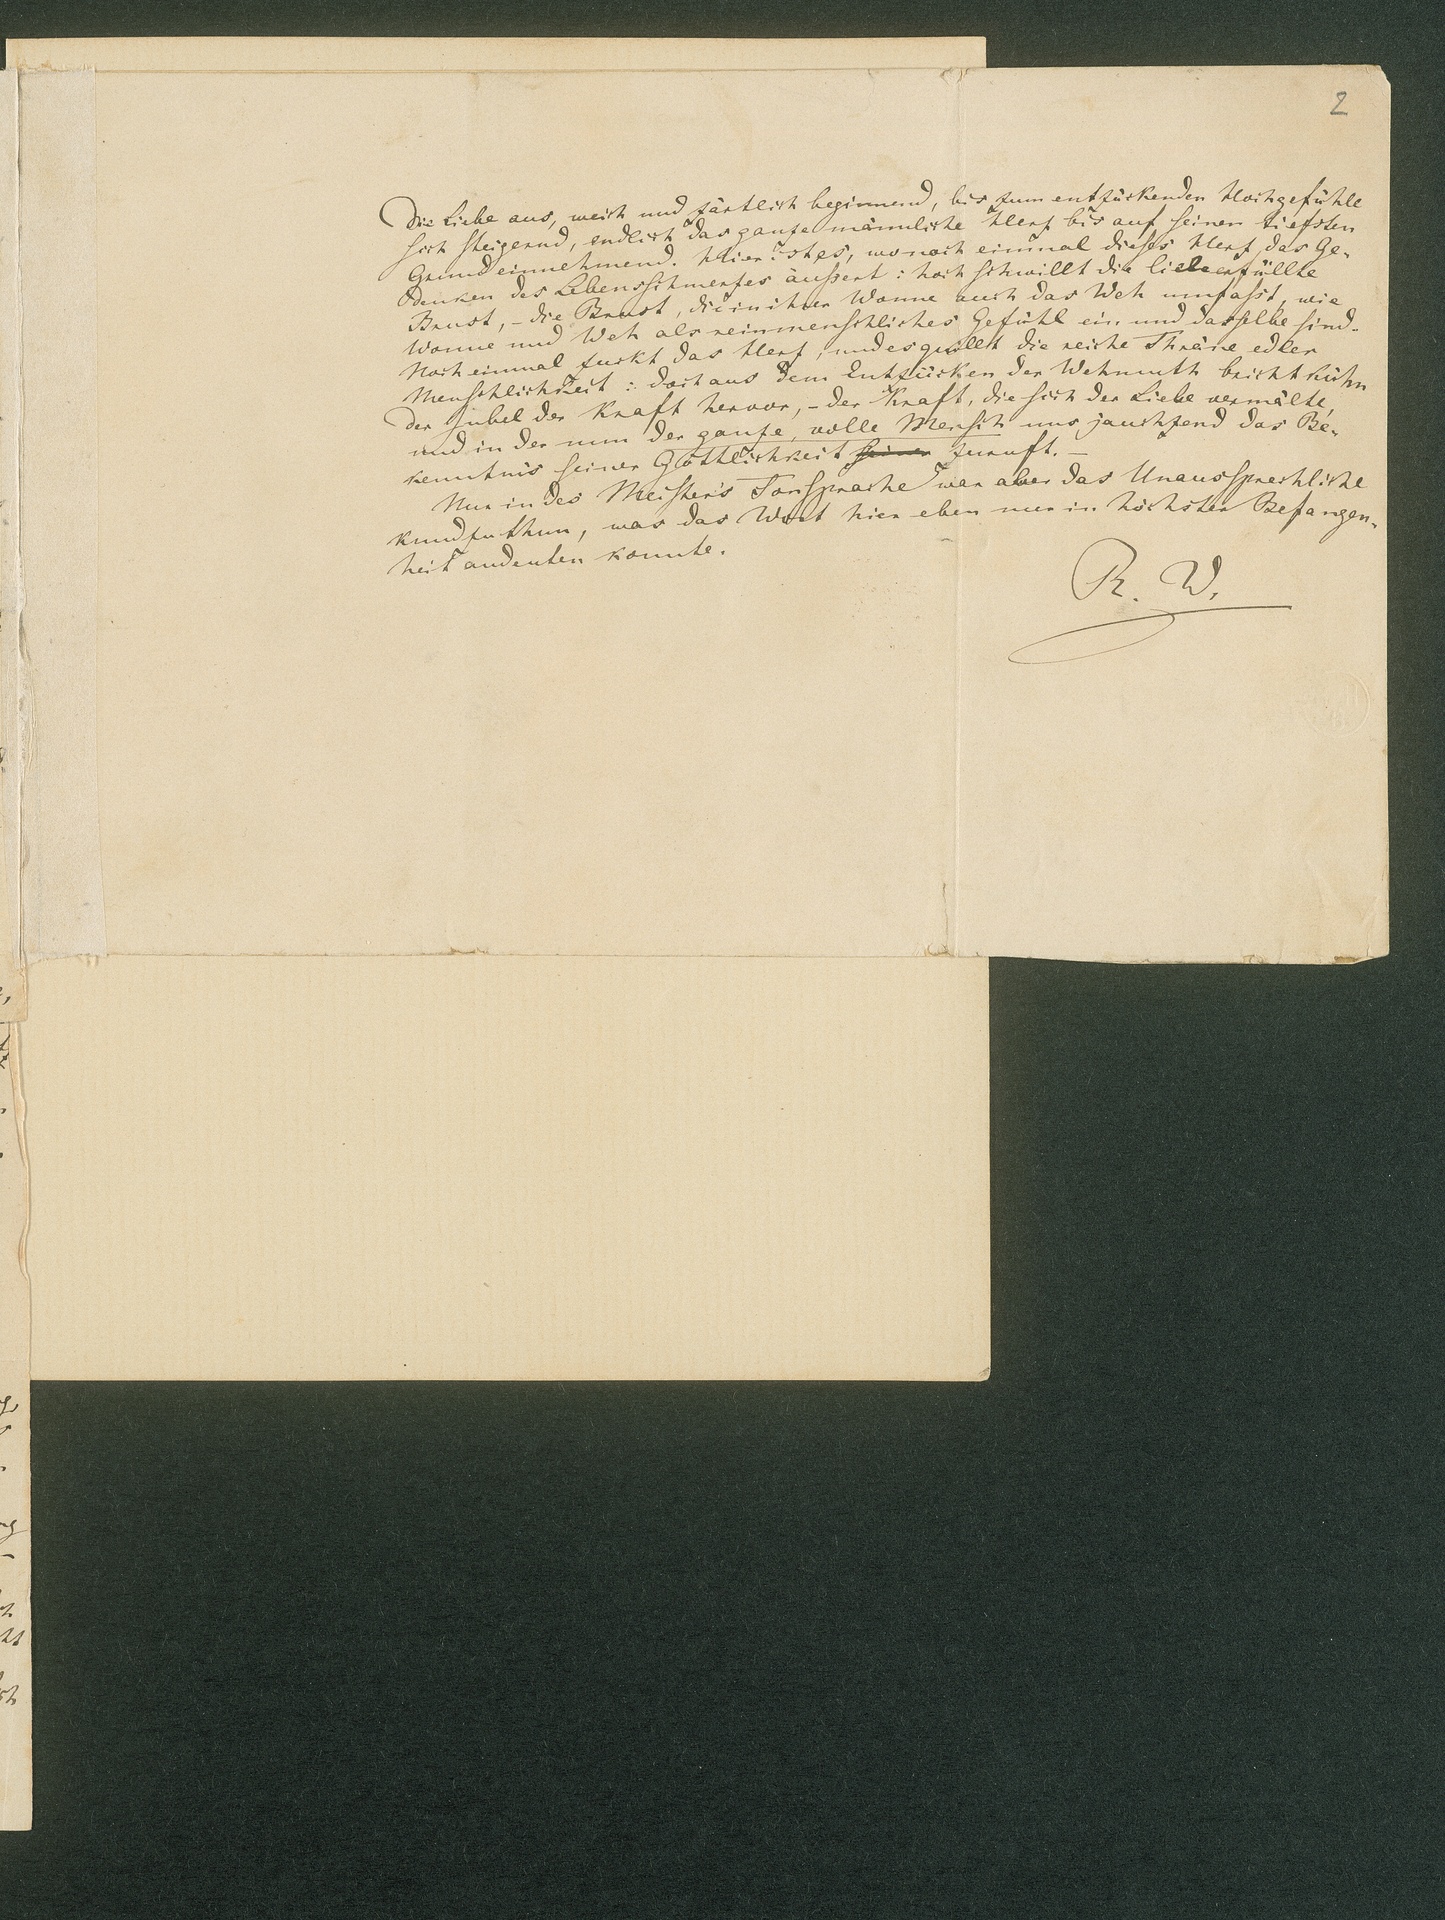 2
Die Liebe aus, weich und zärtlich beginnend, bis zum entzückenden Hochgefühle
sich steigernd, endlich das ganze männliche Herz bis auf seinen tiefsten
Grund einnehmend. Hier ist es, wo noch einmal dieses Herz das Ge-
denken des Lebensschmerzes äußert: hoch schwillt die liebeerfüllte
Brust, – die Brust, die in ihrer Wonne auch das Weh umfasst, wie
Wonne und Weh als reinmenschliches Gefühl ein und dasselbe sind.
Noch einmal zuckt das Herz, und es quillt die reiche Thräne edler
Menschlichkeit: doch aus dem Entzücken der Wehmuth bricht kühn
der Jubel der Kraft hervor, – der Kraft, die sich der Liebe vermälte,
und in der nun der ganze, volle Mensch uns jauchzend das Be-
kenntnis seiner Göttlichkeit seiner zuruft. –
Nur in des Meister's Tonsprache war aber das Unaussprechliche
kundzuthun, was das Wort hier eben nur in höchster Befangen-
heit andeuten konnte.
R. W.